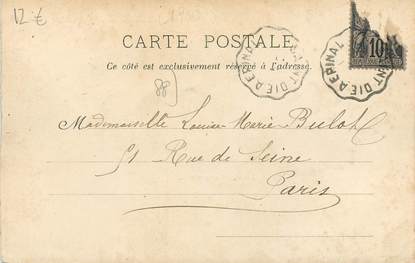 12 €
CARTE POSTALE
Ce côté est exclusivement réservé à l'adresse.
SAINT DIE A EPINAL
SAINT DIE A EPINAL
10
88)
Mademoiselle Louise Marie Bulot
51 Rue de Seine
Paris